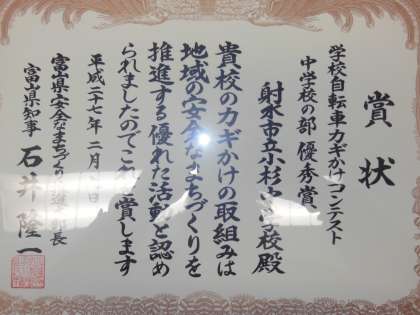 賞状
学校自転車カギかけコンテスト
中学校の部 優秀賞
射水市立小杉中学校殿
貴校のカギかけの取組みは
地域の安全なまちづくりを
推進する優れた活動と認め
られましたのでこれを賞します
平成二十七年 二月 日
富山県安全なまちづくり推進本部長
富山県知事 石井隆一